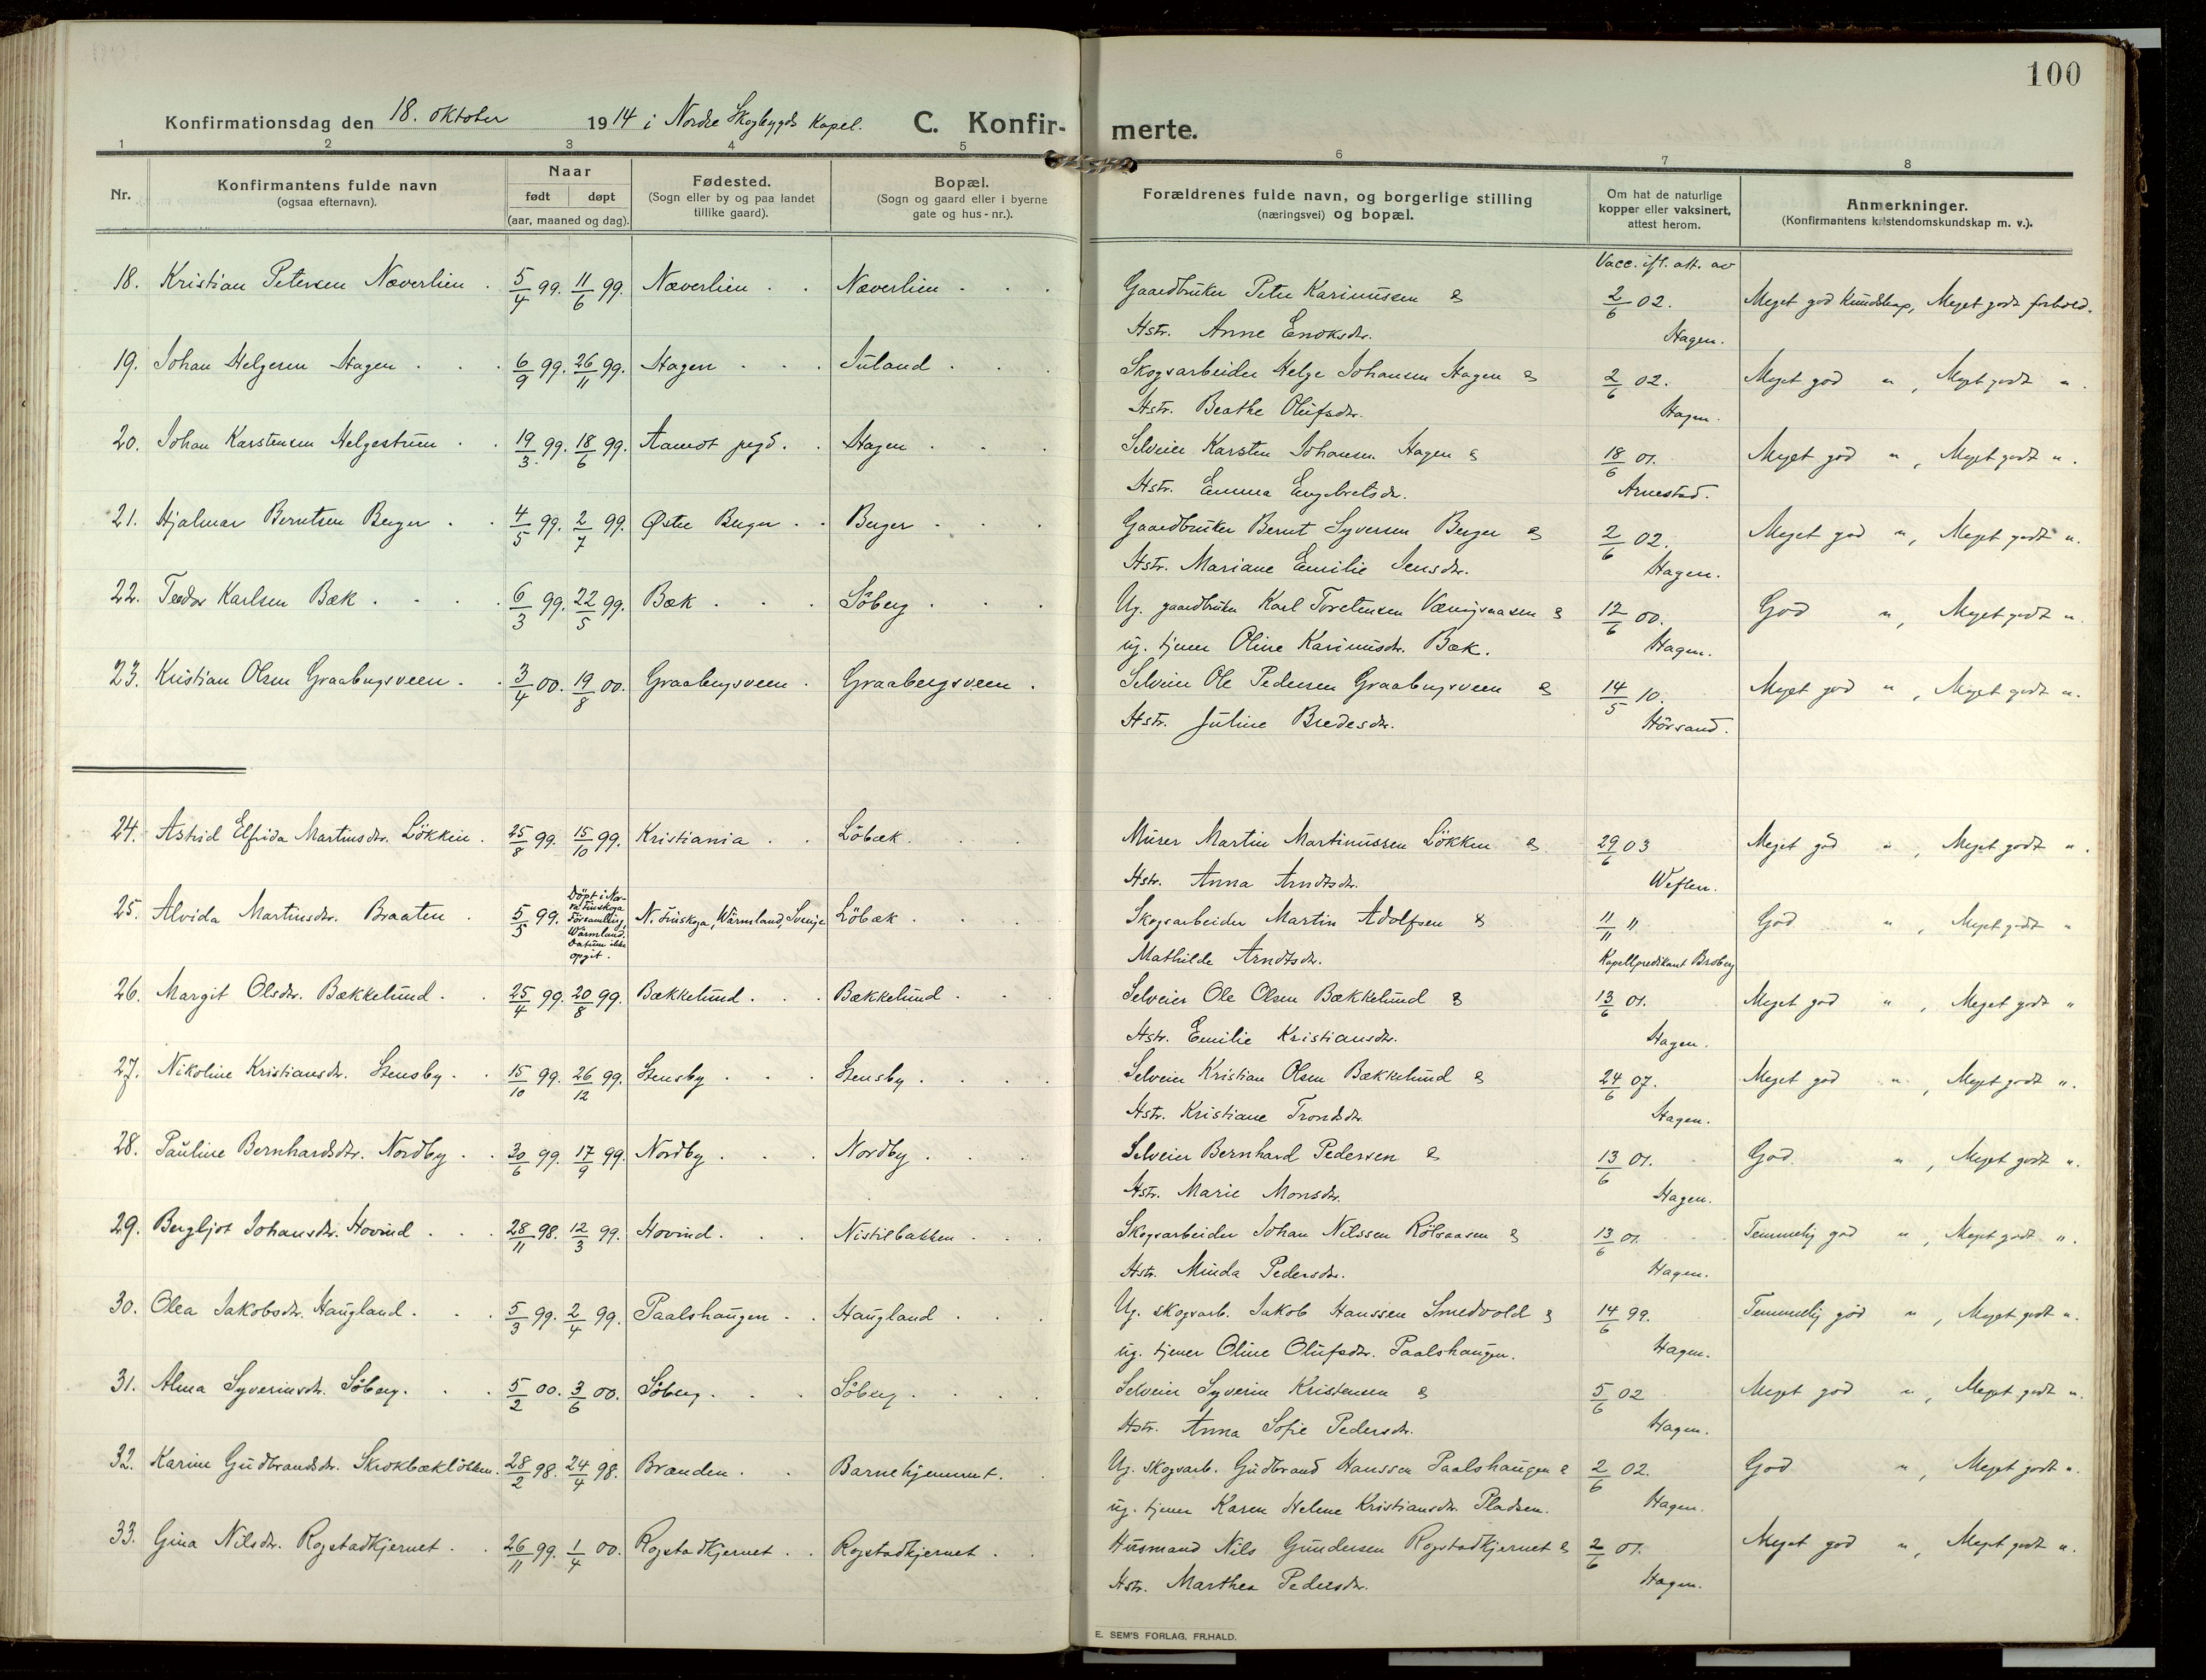 100
Konfirmationsdag den 18. oktober 1914 i Nordre Skogbygds Kapel. C. Konfirmerte.
1 2 3 4 5 6 7 8
Nr. Konfirmantens fulde navn (ogsaa efternavn). Naar født døpt (aar, maaned og dag). Fødested. (Sogn eller by og paa landet tillike gaard). Bopæl. (Sogn og gaard eller i byerne gate og hus-nr.). Forældrenes fulde navn, og borgerlige stilling (næringsvei) og bopæl. Om hat de naturlige kopper eller vaksinert, attest herom. Anmerkninger. (Konfirmantens kristendomskundskap m. v.).
Vacc. ifl. att. av
18. Kristian Petersen Næverlien . 5/4 99. 11/6 99. Næverlien . . Næverlien . . . Gaardbruker Peter Karinussen & 2/6 02. Meget god kundskap, Meget godt forhold.
Hstr. Anne Enoksdr. Hagen.
19. Johan Helgesen Hagen . . . 6/9 99. 26/11 99. Hagen . . . Juland . . . Skogsarbeider Helge Johansen Hagen & 2/6 02. Meget god " , Meget godt " .
Hstr. Beathe Olufsdr. Hagen.
20. Johan Karstensen Helgestrum . . 19/3 99. 18/6 99. Aamot pgd. . Hagen . . . Selveier Karsten Johansen Hagen & 18/6 01. Meget god " , Meget godt " .
Hstr. Emma Engebretsdr. Arnestad.
21. Hjalmar Berntsen Berger . . 4/5 99. 2/7 99. Østre Berger . . Berger . . . Gaardbruker Bernt Syversen Berger & 2/6 02. Meget god " , Meget godt " .
Hstr. Mariane Emilie Jensdr. Hagen.
22. Teodor Karlsen Bæk . . . . 6/3 99. 22/5 99. Bæk . . . Söberg . . . Ug. gaardbruker Karl Torstensen Væringsaasen & 12/6 00. God " , Meget godt " .
ug. tjener Oline Karinusdr. Bæk. Hagen.
23. Kristian Olsen Graabergsveen . . 3/4 00. 19/8 00. Graabergsveen . Graabergsveen . Selveier Ole Pedersen Graabergsveen & 14/5 10. Meget god " , Meget godt " .
Hstr. Juline Bredesdr. Hörsand.
24. Astrid Elfrida Martinsdr. Lökken . 25/8 99. 15/10 99. Kristiania . . Löbæk . . . Murer Martin Martinussen Lökken & 29/6 03 Meget god " , Meget godt " .
Hstr. Anna Arndtsdr. Weflen.
25. Alvida Martinsdr. Braaten . 5/5 99. Döpt i Norra Finskoga Församling, Wärmland. Datum ikke opgit. N. Finskoga, Wärmland, Sverige Löbæk . . . Skogsarbeider Martin Adolfsen & 11/11 11 God " , Meget godt "
Mathilde Arndtsdr. Kapellpredikant Broberg
26. Margit Olsdr. Bækkelund . . 25/4 99. 20/8 99. Bækkelund . . . Bækkelund . . . Selveier Ole Olsen Bækkelund & 13/6 01. Meget god " , Meget godt "
Hstr. Emilie Kristiansdr. Hagen.
27. Nikoline Kristiansdr. Stensby . . 15/10 99. 26/12 99. Stensby . . . Stensby . . . . Selveier Kristian Olsen Bækkelund & 24/6 07. Meget god " , Meget godt " .
Hstr. Kristiane Trondsdr. Hagen.
28. Pauline Bernhardsdr. Nordby . . 30/6 99. 17/9 99. Nordby . . . Nordby . . . Selveier Bernhard Pedersen & 13/6 01. God " , Meget godt " .
Hstr. Marie Monsdr. Hagen.
29. Bergljot Johansdr. Hovind . . . 28/11 98. 12/3 99. Hovind . . . Nistilbakken . . . Skogsarbeider Johan Nilssen Rölsaasen & 13/6 01. Temmelig god " , Meget godt " .
Hstr. Minda Pedersdr. Hagen.
30. Olea Jakobsdr. Haugland . . . 5/3 99. 2/4 99. Paalshaugen . . Haugland . . . Ug. skogsarb. Jakob Hanssen Smedvold & 14/6 99. Temmelig god " , Meget godt " .
ug. tjener Oline Olufsdr. Paalshaugen. Hagen.
31. Alma Syverinsdr. Söberg . . . 5/2 00. 3/6 00. Söberg . . . Söberg . . . . Selveier Syverin Kristensen & 5/6 02 Meget god " , Meget godt " .
Hstr. Anna Sofie Pedersdr. Hagen.
32. Karine Gudbrandsdr. Skrokbæklökken. 28/2 98. 24/4 98. Branden . . Barnehjemmet. . Ug. skogsarb. Gudbrand Hanssen Paalshaugen & 2/6 02. God " , Meget godt " .
ug. tjener Karen Helene Kristiansdr. Pladsen. Hagen.
33. Gina Nilsdr. Rogstadkjernet . . 26/11 99. 1/4 00. Rogstadkjernet . . Rogstadkjernet . . Husmand Nils Gundersen Rogstadkjernet & 2/6 01. Meget god " , Meget godt " .
Hstr. Marthea Pedersdr. Hagen.
E. SEM'S FORLAG, FR.HALD.